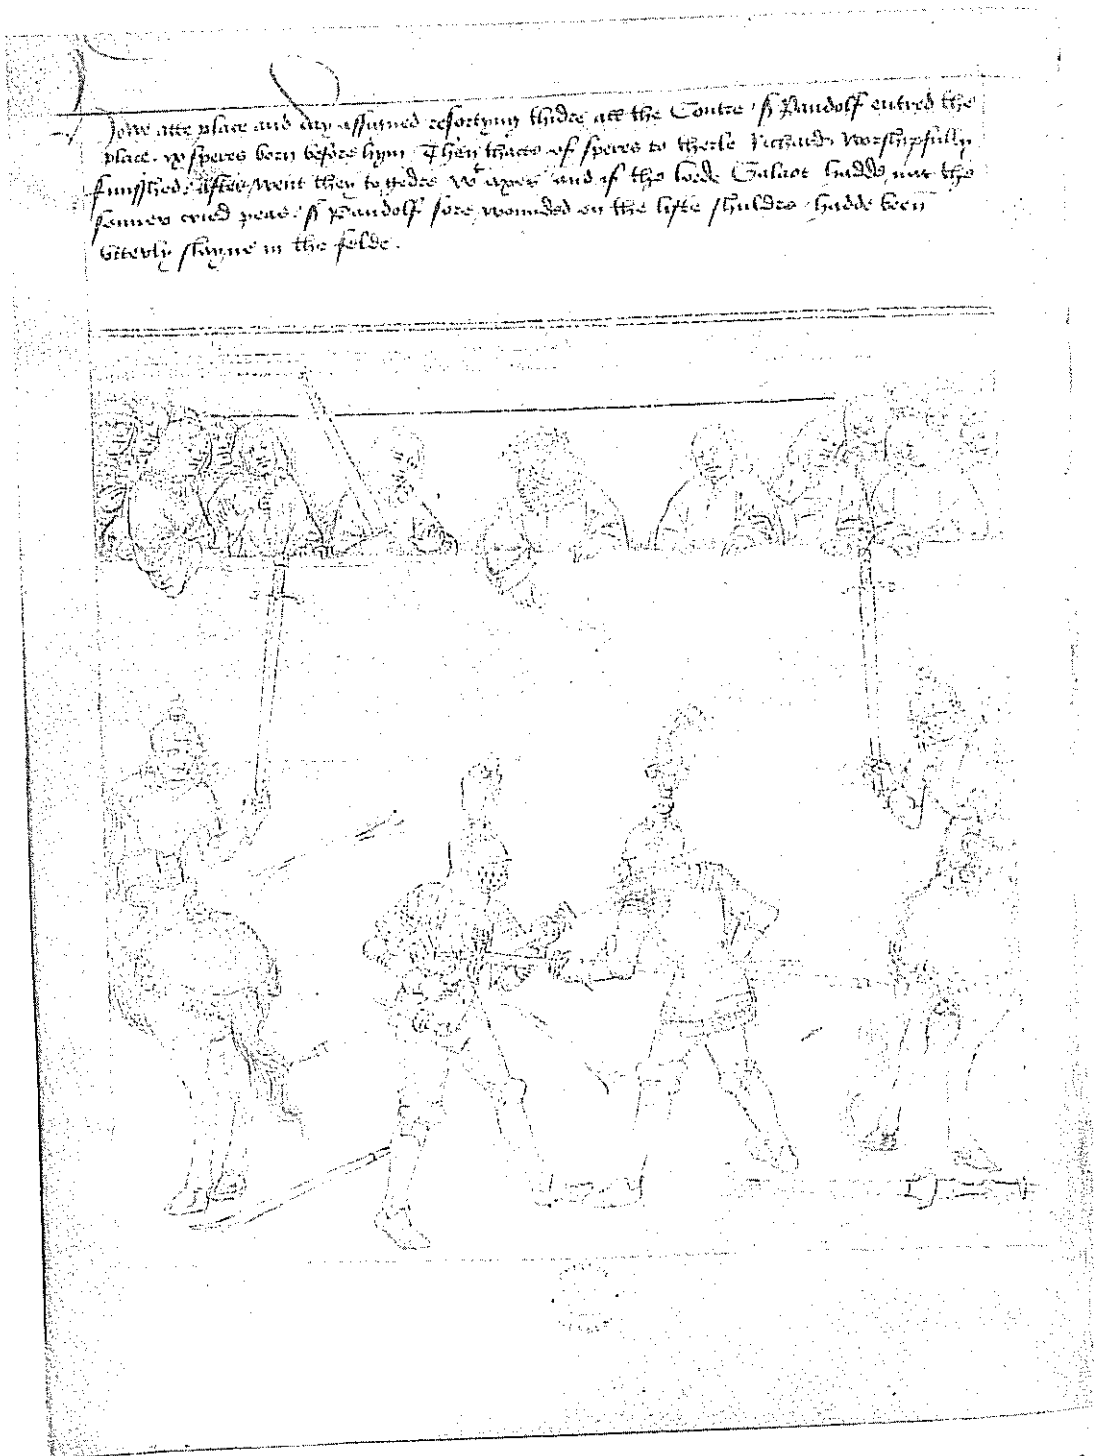 Howe atte place and day assigned resortyng thidre all the Contre · Sr Pandolf entred the
place · ix speres born before hym · Then thacte of speres to therle Richard worshipfully
funisshed · After went they togedre wt axes and if the lorde Galaot hadde nat the
sonner cried peas · Sr Pandolf sore wounded on the lifte shuldre hadde been
utterly slayne in the felde .